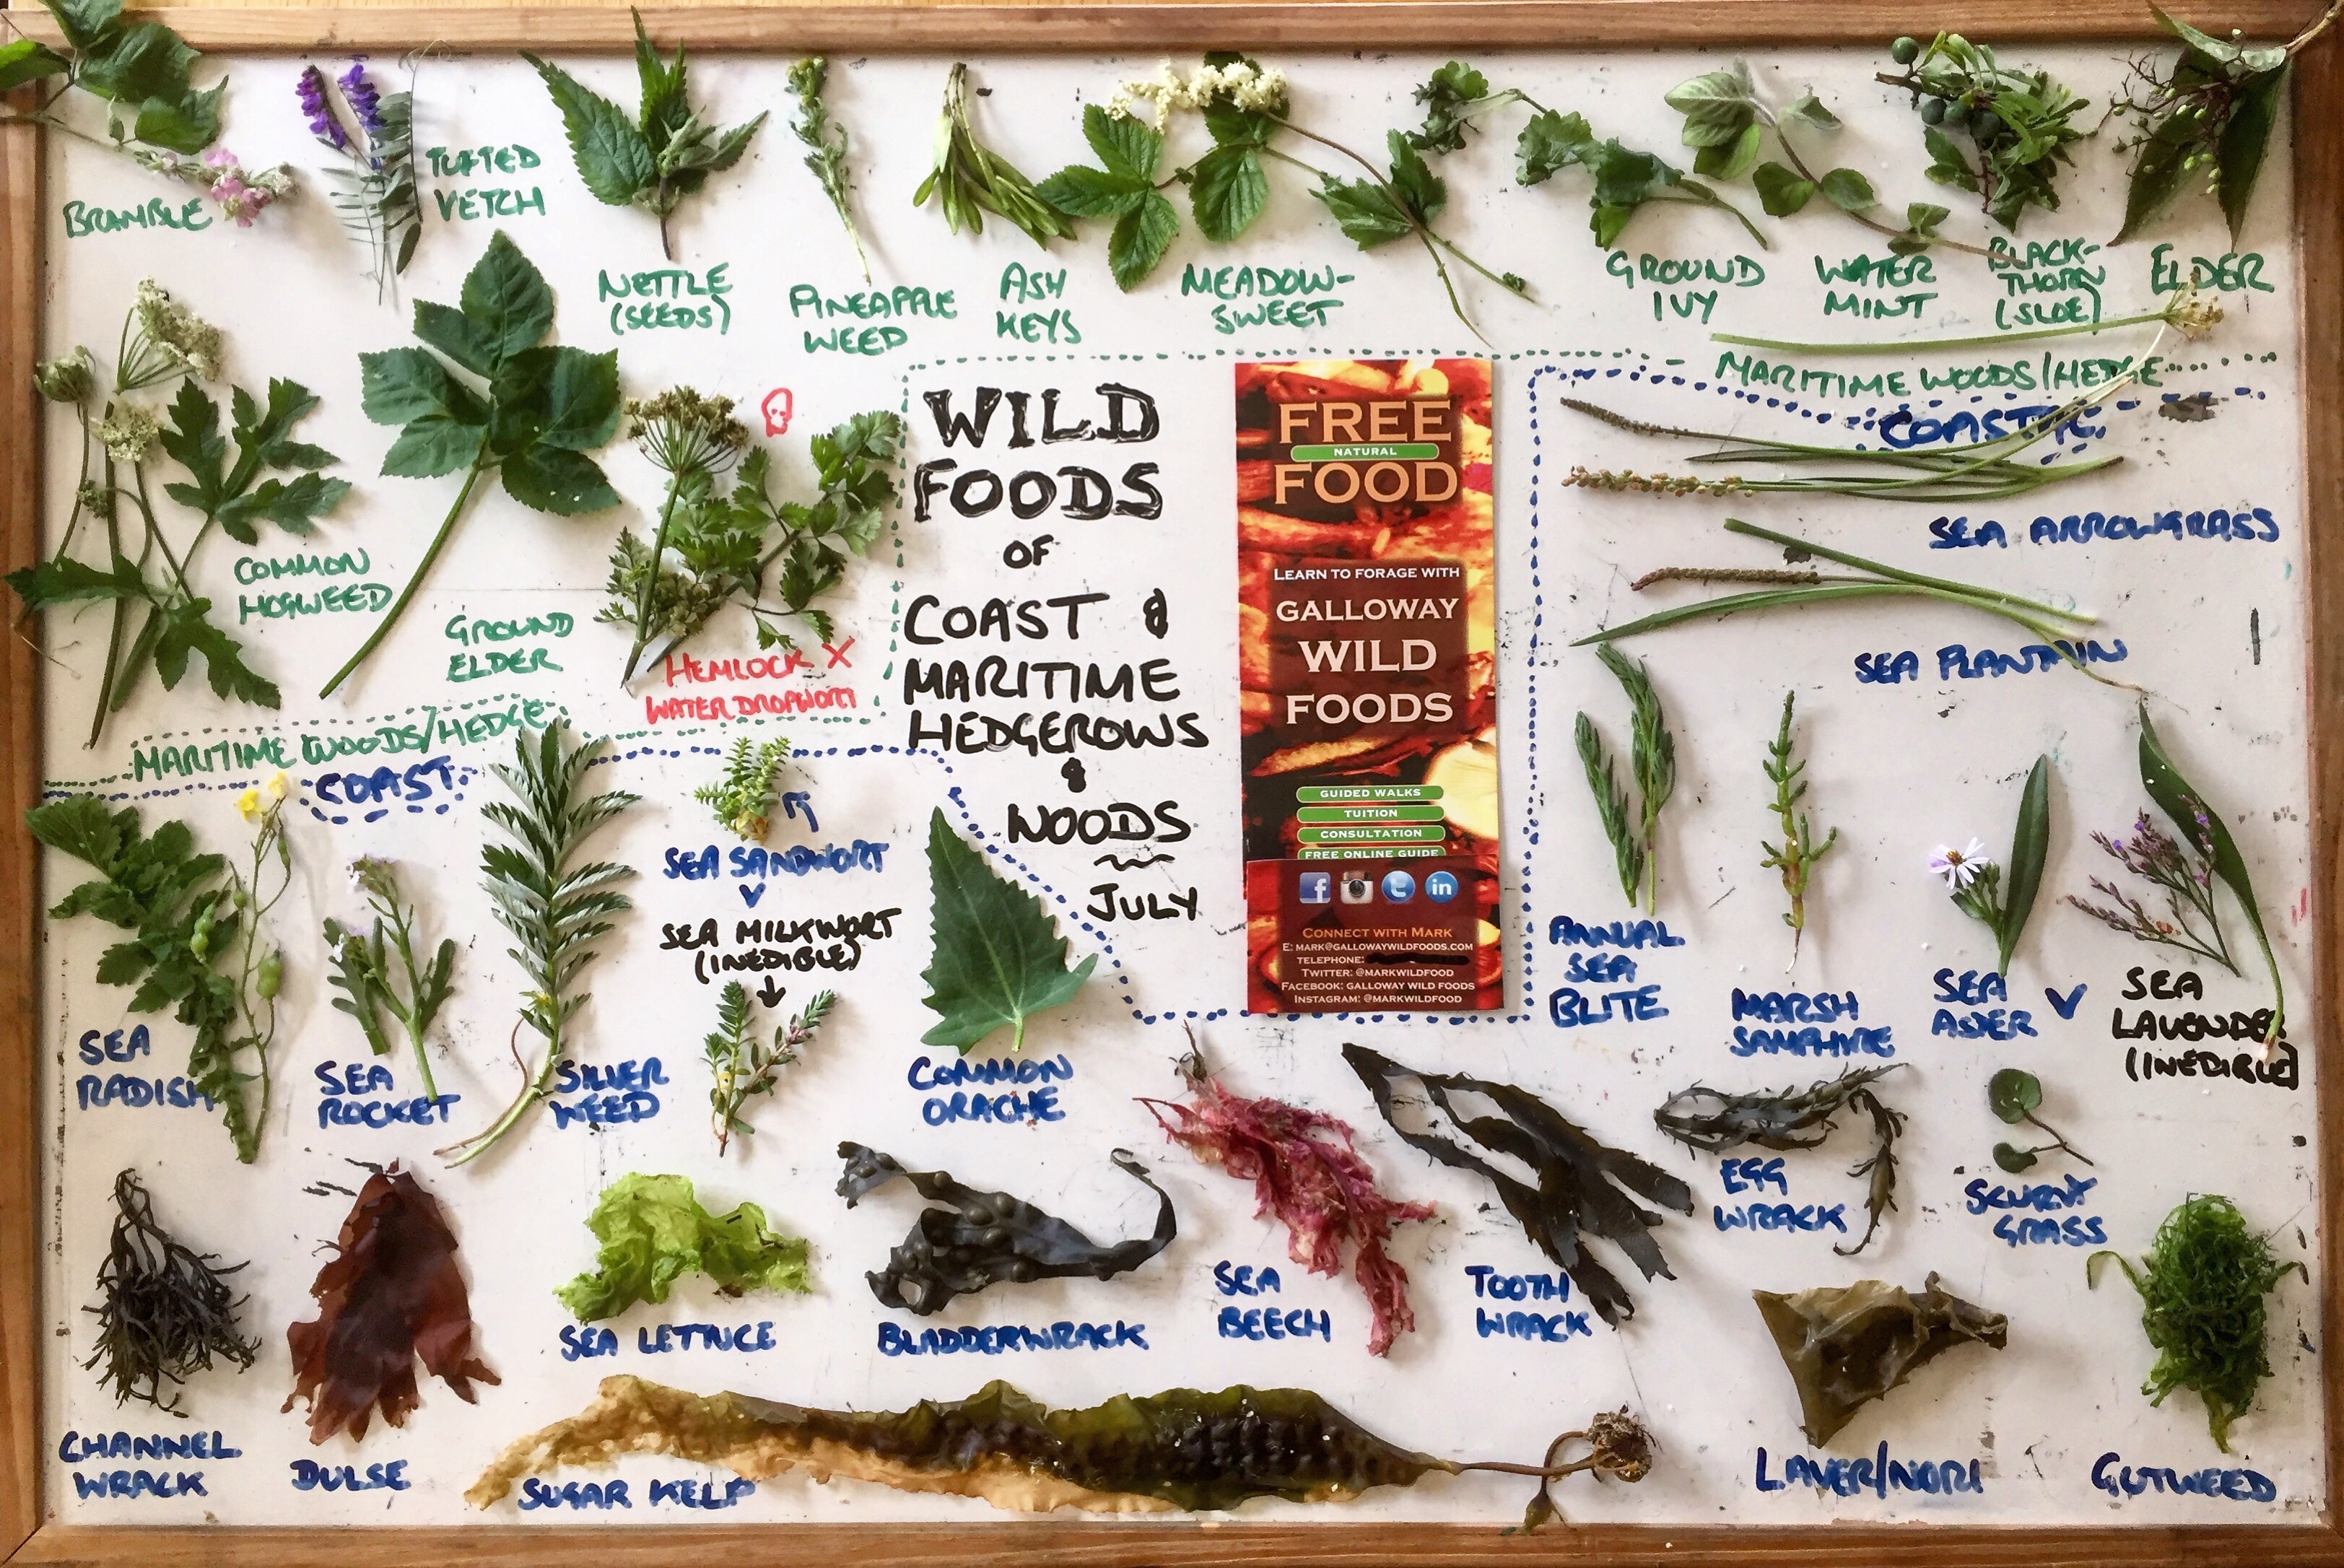 BRAMBLE
TUFTED
VETCH
NETTLE
(SEEDS)
PINEAPPLE
WEED
ASH
KEYS
MEADOW-
SWEET
GROUND
IVY
WATER
MINT
BLACK-
THORN
(SLOE)
ELDER
COMMON
HOGWEED
GROUND
ELDER
HEMLOCK X
WATER DROPWORT
MARITIME WOODS/HEDGE
COAST
WILD
FOODS
OF
COAST &
MARITIME
HEDGEROWS
&
WOODS
~
JULY
FREE
NATURAL
FOOD
LEARN TO FORAGE WITH
GALLOWAY
WILD
FOODS
GUIDED WALKS
TUITION
CONSULTATION
FREE ONLINE GUIDE
CONNECT WITH MARK
E: MARK@GALLOWAYWILDFOODS.COM
TELEPHONE:
TWITTER: @MARKWILDFOOD
FACEBOOK: GALLOWAY WILD FOODS
INSTAGRAM: @MARKWILDFOOD
MARITIME WOODS/HEDGE
COASTAL
SEA ARROWGRASS
SEA PLANTAIN
ANNUAL
SEA
BLITE
MARSH
SAMPHIRE
SEA
ASTER
V
SEA
LAVENDER
(INEDIBLE)
SEA
RADISH
SEA
ROCKET
SILVER
WEED
SEA SANDWORT
V
SEA MILKWORT
(INEDIBLE)
COMMON
ORACHE
CHANNEL
WRACK
DULSE
SEA LETTUCE
BLADDERWRACK
SEA
BEECH
TOOTH
WRACK
EGG
WRACK
SCURVY
GRASS
SUGAR KELP
LAVER/NORI
GUTWEED